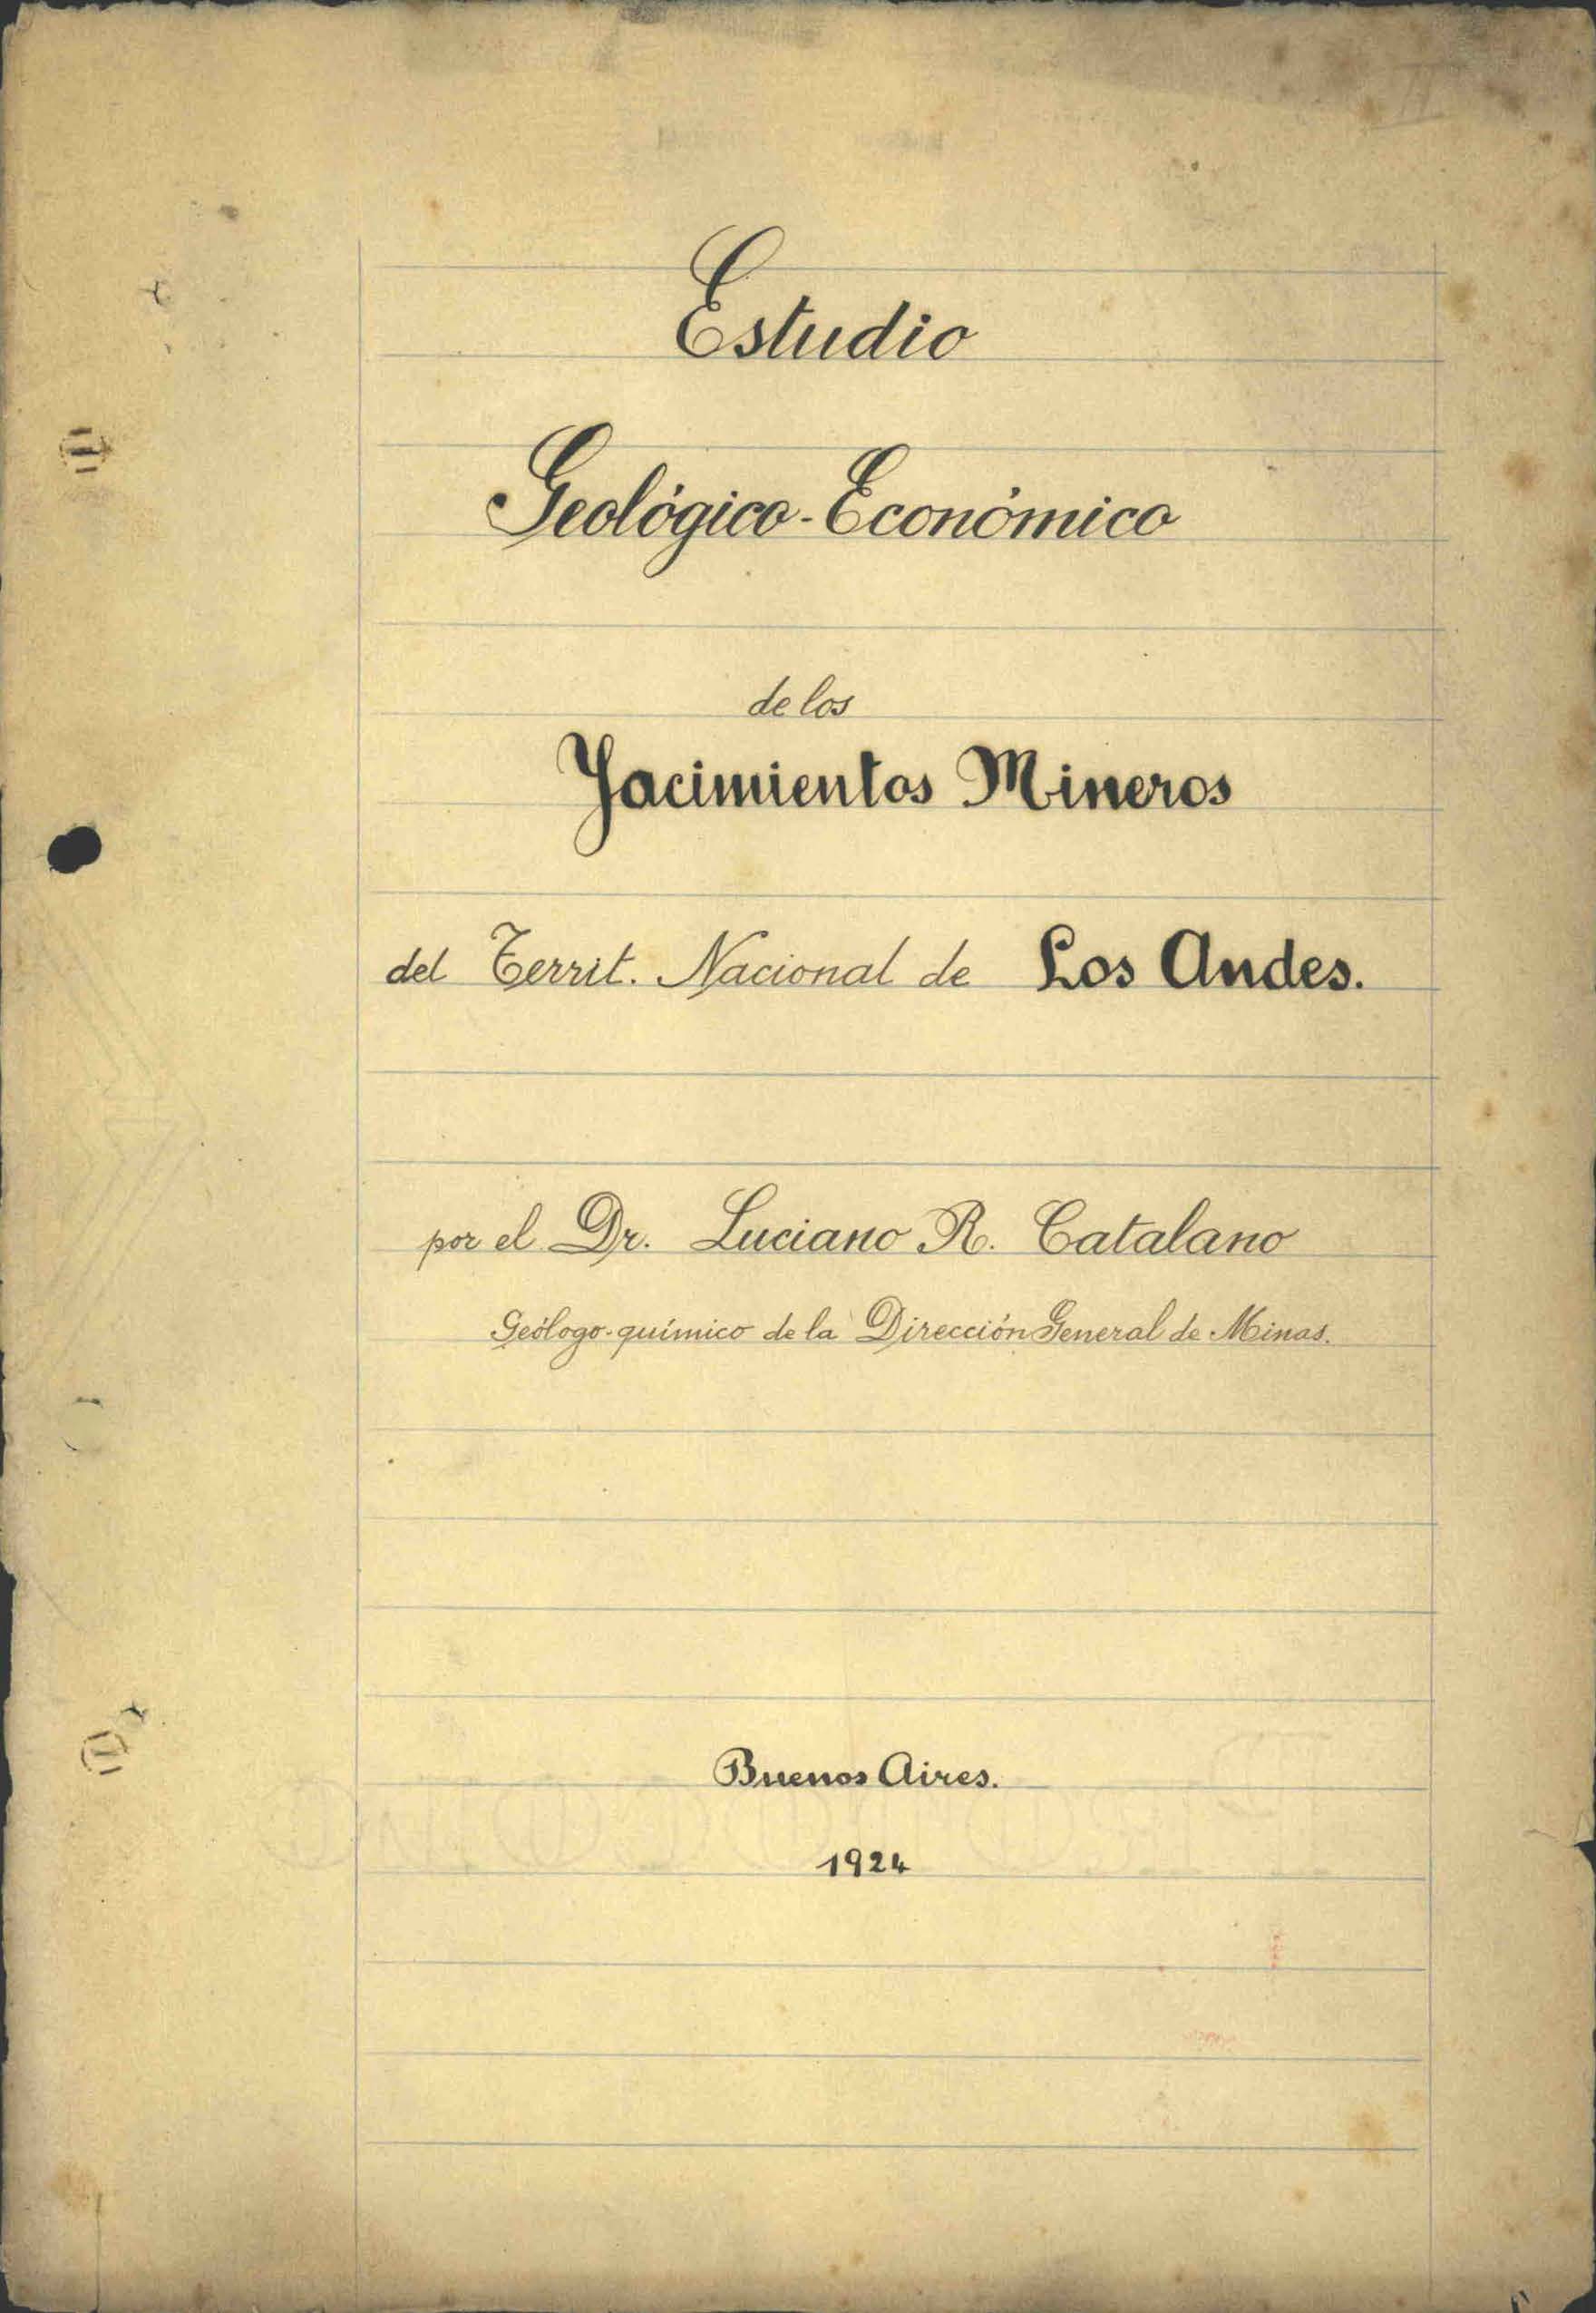 Estudio
Geológico-Económico
de los
Yacimientos Mineros
del Territ. Nacional de Los Andes.
por el Dr. Luciano R. Catalano
Geólogo-químico de la Dirección General de Minas.
Buenos Aires.
1924